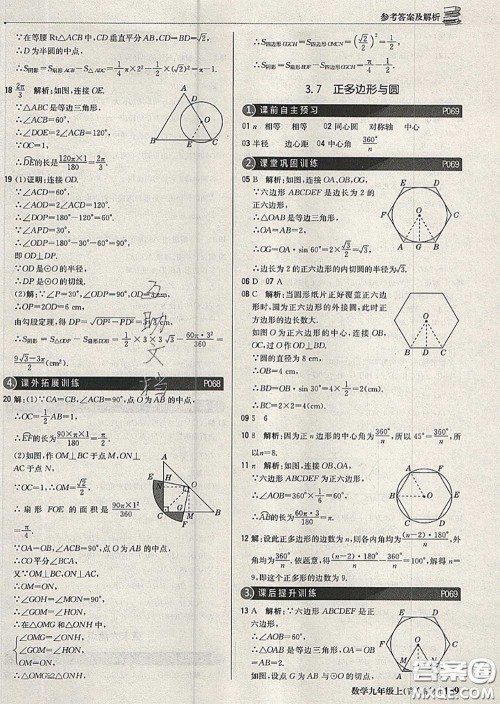 参考答案及解析
∵在等腰 Rt△ABC 中,CD 垂直平分 AB,CD=√2,
∴D 为半圆的中点,
∴S阴影=S扇形ABC-S△ADC=1/4π×2²-1/2×(√2)²=π-1.
18 2π/3 解析:如图,连接 OE.
∵△ABC 是等边三角形,
∴∠DOE=2∠B=120°,
∴DE的长是120π×1/180=2π/3.
19 (1)证明:连接 OD.
∵∠ACD=60°,
∴∠AOD=2∠ACD=120°,
∴∠DOP=180°-120°=60°.
∵∠APD=30°,
∴∠ODP=180°-30°-60°=90°,
即 OD⊥DP.
∵OD 是⊙O 的半径,
∴DP 是⊙O 的切线.
(2)解:∵∠P=30°,∠ODP=90°,OD=3 cm,
∴OP=2OD=6 cm,
由勾股定理,得 DP=√(OP²-PD²)=3√3
∴S阴影=S△ODP-S扇形DOB=1/2×3×3√3-60π·3²/360
=(9√3-3π)/2(cm²).
4 课外拓展训练 P068
20 解:(1)∵CA=CB,∠ACB=90°,点 O 为 AB 的中点,
∴OC=1/2AB=1,
∴EF的长为90×π×1/180=π/2.
(2)如图,作 OM⊥BC 于点 M,ON⊥
AC 于点 N,
∵OC=1,∴OM=√2/2,
∴扇形 FOE 的面积是 90π×1²/360=
π/4.
∵OA=OB,∠ACB=90°,点 O 为 AB 的中点,
∴CO平分∠BCA,
又∵OM⊥BC,ON⊥AC,
∴OM=ON.
∵∠GOH=∠MON=90°,
∴∠GOM=∠HON.
∴在△OMG 和△ONH 中,
∠OMG=∠ONH,
∠GOM=∠HON,
OM=ON,
∴S四边形CGOH=S四边形OMCN=(√2/2)²=1/2.
3.7 正多边形与圆
1 课前自主预习 P069
01 n 相等 相等 02 同心圆 对称轴 中心
03 半径 边心距 04 中心角 360°/n
2 课堂巩固训练 P069
05 B 解析:如图,连接 OA,OB,OG.∵
六边形 ABCDEF 是边长为 2 的
正六边形,
∴△OAB 是等边三角形,
∴OA=AB=2,
∴OG=OA·sin 60°=2×√3/2=√3,
∴边长为 2 的正六边形的内切圆的半径为√3.
06 D 07 A
08 C 解析:当圆形纸片正好覆盖正六边
形时,圆为正六边形的外接圆,此时正六
边形的边长最大.
如图 O 为正六边形的中心,连接 OB,
OC,过 O 作 OD⊥BC 于点 D,
∵圆的直径为 8 cm,
∴OB=4(cm),
∴BC=2BD=2·OB·sin 30°=2×1/2×4=4(cm).
09 5 6
10 8 解析:因为正 n 边形的中心角为360°/n,所以 45°=360°/n,所
以n=8.
11 π 解析:如图,连接 OB,OA,
∵六边形 ABCDEF 是正六边形,
∴∠AOB=360°/6=60°,
∴AB的长为60π·3/180=π.
12 解:设此正多边形的边数为 n,则各内角为(n-2)·180°/n,外
角为360°/n,依题意,得(n-2)·180°/n-360°/n=100°,解得 n=
9,即这个正多边形的边数为 9.
3 课后提升训练 P069
13 A 解析:∵六边形 ABCDEF 是正六
边形,
∴∠AOB=60°,
∴△OAB 是等边三角形,OA=OB=
AB=2.
设点 G 为 AB
数学九年级上